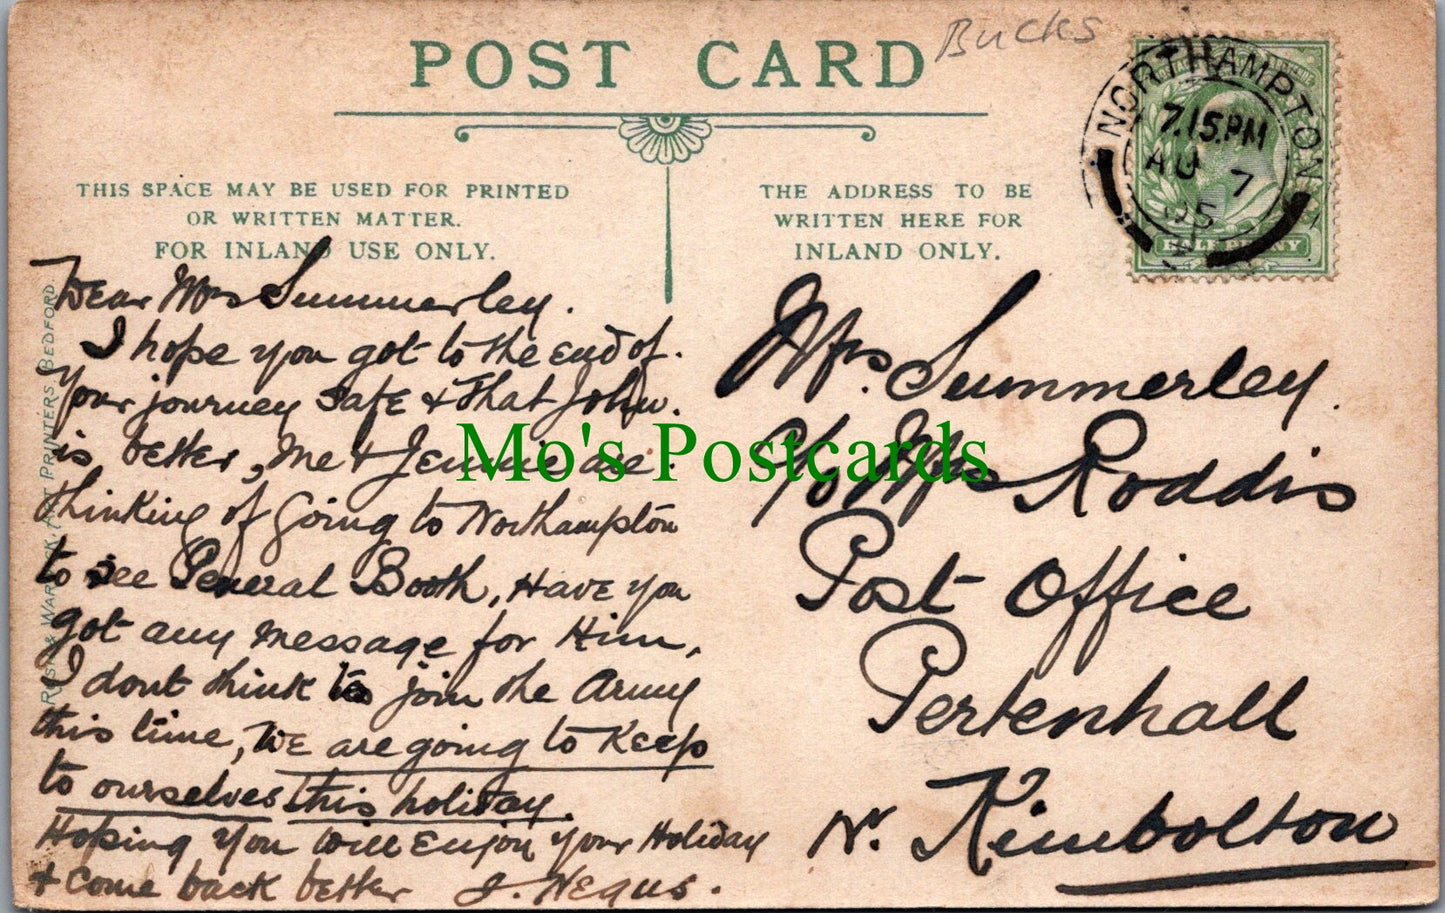 Bucks
POST CARD
THIS SPACE MAY BE USED FOR PRINTED
OR WRITTEN MATTER.
FOR INLAND USE ONLY.
THE ADDRESS TO BE
WRITTEN HERE FOR
INLAND ONLY.
NORTHAMPTON
7.15.PM
AU 7
05
HALF PENNY
Dear Mrs Summerley.
I hope you got to the end of.
Your journey safe & that John.
is better, me & Jennie are.
thinking of going to Northampton
to see General Booth, Have you
got any message for Him,
I dont think to join the Army
this time, We are going to Keep
to ourselves this holiday.
Hoping you will Enjoy your Holiday
& come back better J. Negus.
Mrs. Summerley.
C/o Mrs Roddis
Post Office
Pertenhall
Nr. Kimbolton
PRINTERS BEDFORD.
Mo's Postcards